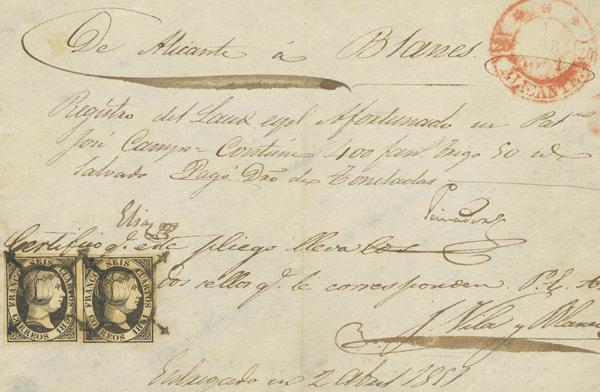 De Alicante á Blanes.
ALICANTE
Registro del Laud espl. Afortunado su Patn.
José Camps = Contiene 400 fans. trigo 50 id
Salvado Pagó Dro. de Toneladas
Certifico q. este pliego lleva los
dos sellos q. le corresponden. P. E. A.
J. Vila y Blanco
FRANCO SEIS CUARTOS
CORREOS 1851
FRANCO SEIS CUARTOS
CORREOS 1851
Entregado en 2 Abril 1851